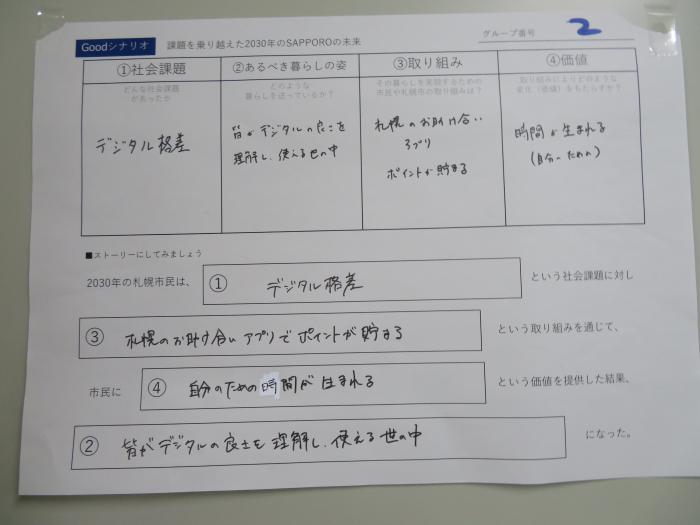 Goodシナリオ 課題を乗り越えた2030年のSAPPOROの未来 グループ番号 2
①社会課題 ②あるべき暮らしの姿 ③取り組み ④価値
どんな社会課題があったか
どのような暮らしを送っているか？
その暮らしを実現するための市民や札幌市の取り組みは？
取り組みによりどのような変化（価値）をもたらすか？
デジタル格差
皆がデジタルの良さを
理解し、使える世の中
札幌のお助け合い
アプリ
ポイントが貯まる
時間が生まれる
(自分のための)
■ストーリーにしてみましょう
2030年の札幌市民は、 ① デジタル格差 という社会課題に対し
③ 札幌のお助け合いアプリでポイントが貯まる という取り組みを通じて、
市民に ④ 自分のための時間が生まれる という価値を提供した結果、
② 皆がデジタルの良さを理解し、使える世の中 になった。